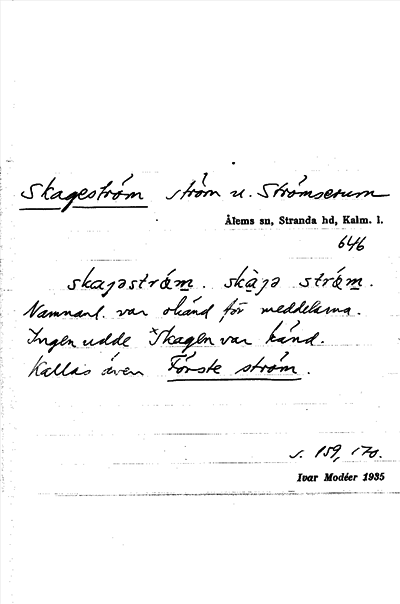 Skageström ström u. Strömserum
Ålems sn, Stranda hd, Kalm. l.
646
skaɲəström. skàɲə ström.
Namnanl. var okänd för meddelarna.
Ingen udde *Skagen var känd.
Kallas även Förste ström.
s. 159, 170.
Ivar Modéer 1935